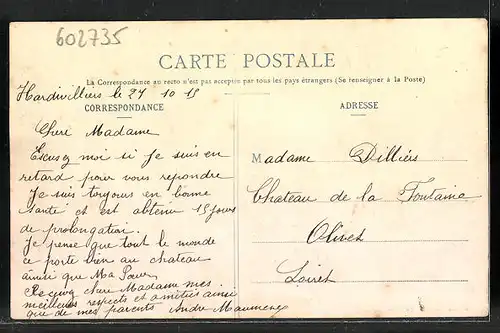 602735
CARTE POSTALE
La Correspondance au recto n'est pas acceptée par tous les pays étrangers (Se renseigner à la Poste)
Hardivilliers le 27 10 15
CORRESPONDANCE
Cheré Madame
Escusez moi si Je suis en
retard pour vous repondre
Je suis toujours en bonne
santé et est obtenu 15 jours
de prolongation.
Je pense que tout le monde
ce porte bien au chateau
ainsi que Ma
Recevez chere Madame mes
meilleurs respects et amitiés ainsi
que de mes parents Andre
ADRESSE
Madame Dilliés
Chateau de la Fontaine
Olivet
Loiret